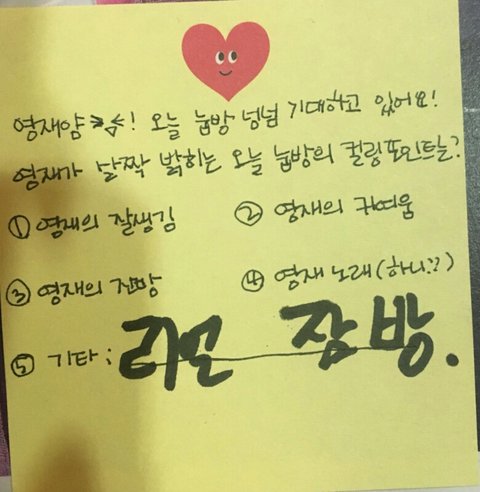 영재얌 >ㅅ<! 오늘 눕방 넝넘 기대하고 있어요!
영재가 살짝 밝히는 오늘 눕방의 컬링포인트는?
① 영재의 잘생김
② 영재의 귀여움
③ 영재의 잔망
④ 영재 노래(하나??)
⑤ 기타: 리얼 잠방.